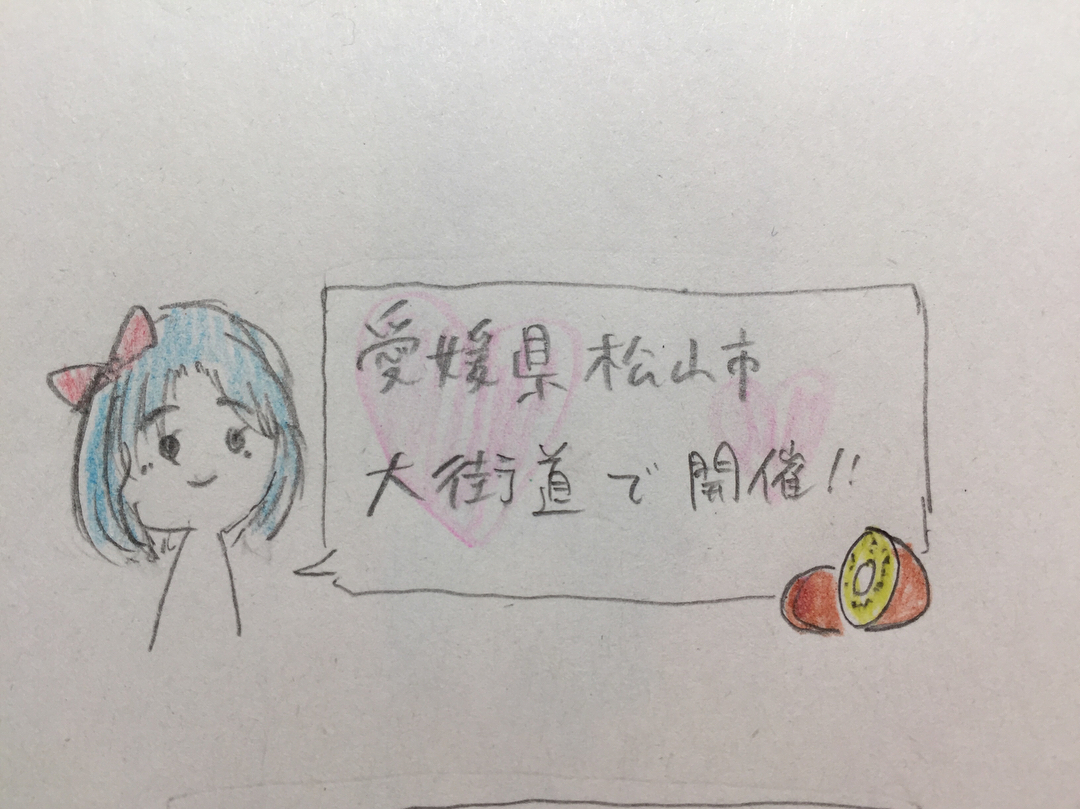 愛媛県松山市
大街道で開催!!